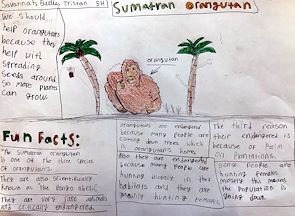 Savannah Tristan 5H
Sumatran Orangutan
We should...
help orangutans
because they
help with
spreading
seeds around
so more plants
can grow
orangutan
Fun Facts:
The Sumatran orangutan
is one of the three species
of orangutan's.
They are also scientifically
known as the Pongo abelii.
They are very rare animals
and critically endangered.
orangutans are endangered
because many people are
cutting down trees which
is orangutan's home.
Also they are endangered
because many people are
hunting illegaly in their
habitats and they are
mainly hunting females.
The third reason
their endangered is
because of Palm
oil plantations.
people are
hunting females
mostly this means
the population
is going down.